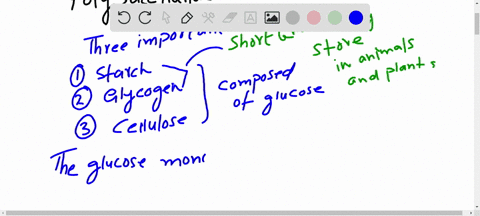 Three important
short
store
in animals
and plants
① Starch
② Glycogen
③ Cellulose
composed
of glucose
The glucose mono